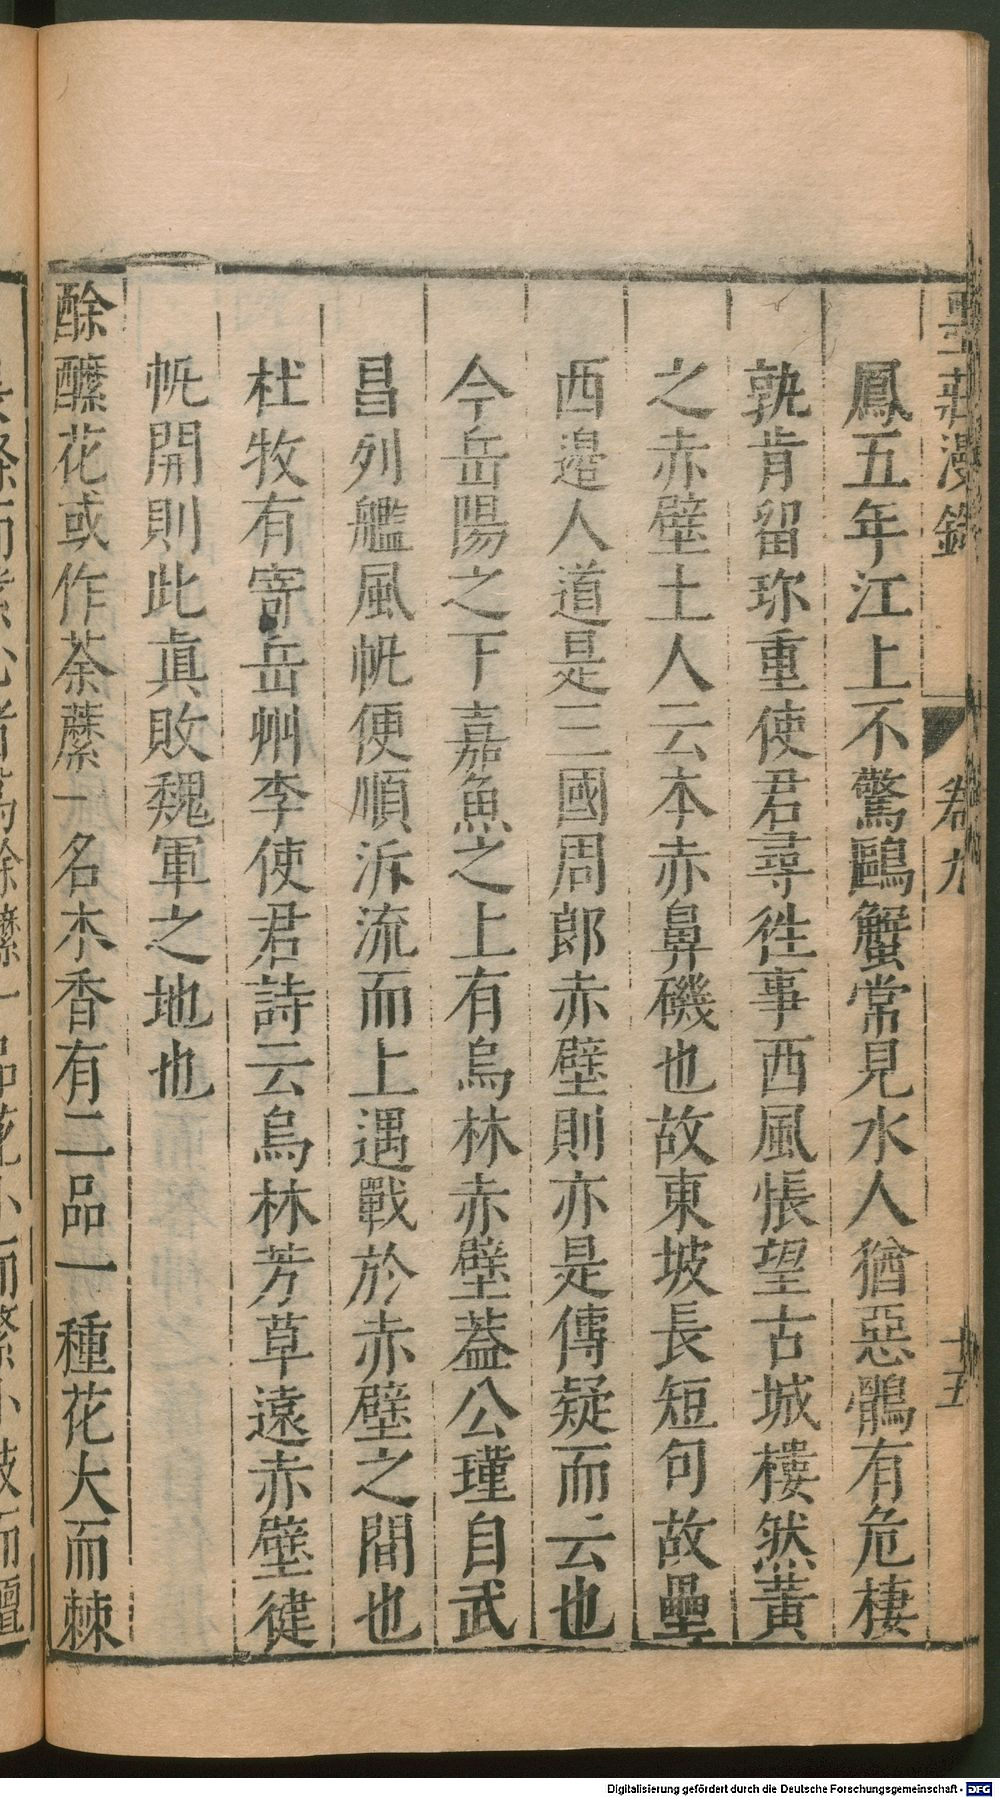 墨莊漫錄
卷九
十五
鳳五年江上不驚鷗蟹常見水人猶惡鶻有危棲
孰肯留珎重使君尋徃事西風悵望古城樓然黃
之赤壁土人云本赤鼻磯也故東坡長短句故壘
西邉人道是三國周郎赤壁則亦是傳疑而云也
今岳陽之下嘉魚之上有烏林赤壁葢公瑾自武
昌列艦風帆便順泝流而上遇戰於赤壁之間也
杜牧有寄岳州李使君詩云烏林芳草遠赤壁健
帆開則此眞敗魏軍之地也
酴醿花或作荼蘼一名木香有二品一種花大而棘
Digitalisierung gefördert durch die Deutsche Forschungsgemeinschaft - DFG